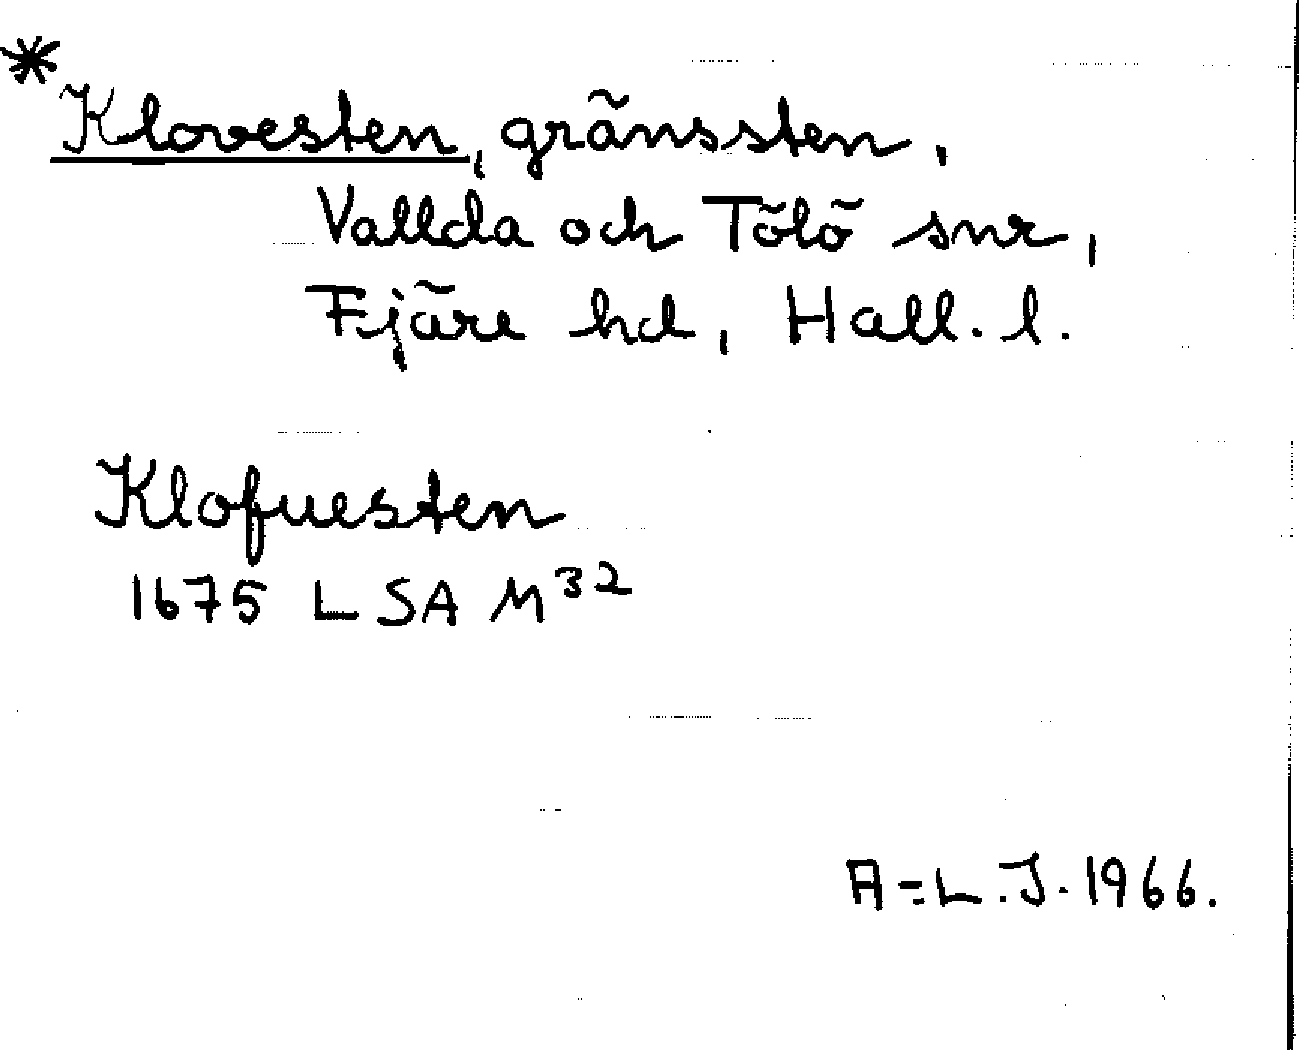 *Klovesten, gränssten,
Vallda och Tölö snr,
Fjäre hd, Hall. l.
Klofuesten
1675 LSA M³²
A-L.J. 1966.